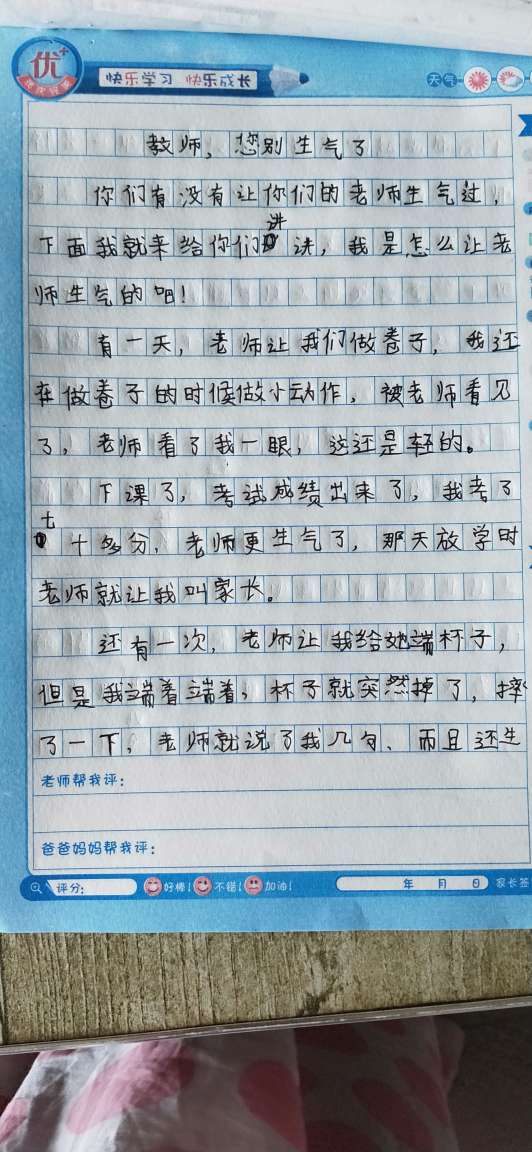 优+
快乐学习 快乐成长
天气
教师，您别生气了
你们有没有让你们的老师生气过，
下面我就来给你们讲讲，我是怎么让老
师生气的吧！
有一天，老师让我们做卷子，我还
在做卷子的时候做小动作，被老师看见
了，老师看了我一眼，这还是轻的。
下课了，考试成绩出来了，我考了
七十多分，老师更生气了，那天放学时
老师就让我叫家长。
还有一次，老师让我给她端杯子，
但是我端着端着，杯子就突然掉了，摔
了一下，老师就说了我几句、而且还生
老师帮我评：
爸爸妈妈帮我评：
评分：
好棒！
不错！
加油！
年 月 日
家长签